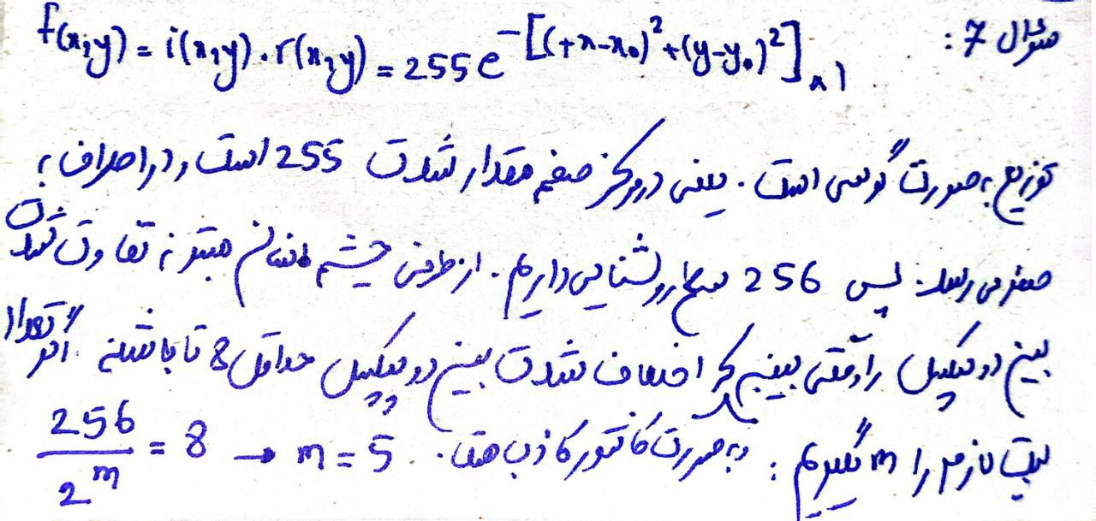 سوال 7:
f(x,y) = i(x,y) . r(x,y) = 255 e^-[(+x-x₀)²+(y-y₀)²] × 1
توزیع بصورت گوسی است. یعنی در مرکز صفحه مقدار شدت 255 است و در اطراف به
صفر می رسد. پس 256 سطح روشنایی داریم. از طرفی چشم انسان میتونه تفاوت شدت
بین دو پیکسل را وقتی ببینه که اختلاف شدت بین دو پیکسل حداقل 8 تا باشه. اگر تعداد
بیت لازم را m بگیریم: به صورت کانتور کاذب
256/2^m = 8 → m = 5